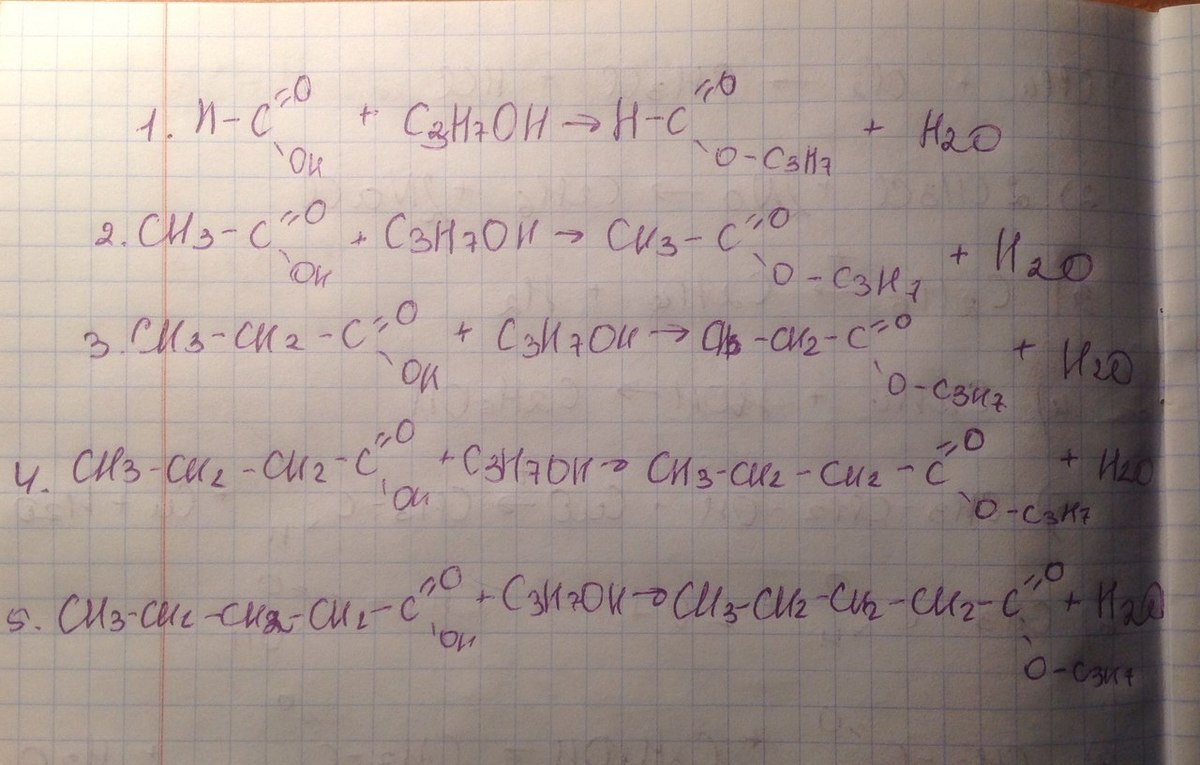 1. H-C=O OH + C3H7OH → H-C=O O-C3H7 + H2O
2. CH3-C=O OH + C3H7OH → CH3-C=O O-C3H7 + H2O
3. CH3-CH2-C=O OH + C3H7OH → CH3-CH2-C=O O-C3H7 + H2O
4. CH3-CH2-CH2-C=O OH + C3H7OH → CH3-CH2-CH2-C=O O-C3H7 + H2O
5. CH3-CH2-CH2-CH2-C=O OH + C3H7OH → CH3-CH2-CH2-CH2-C=O O-C3H7 + H2O